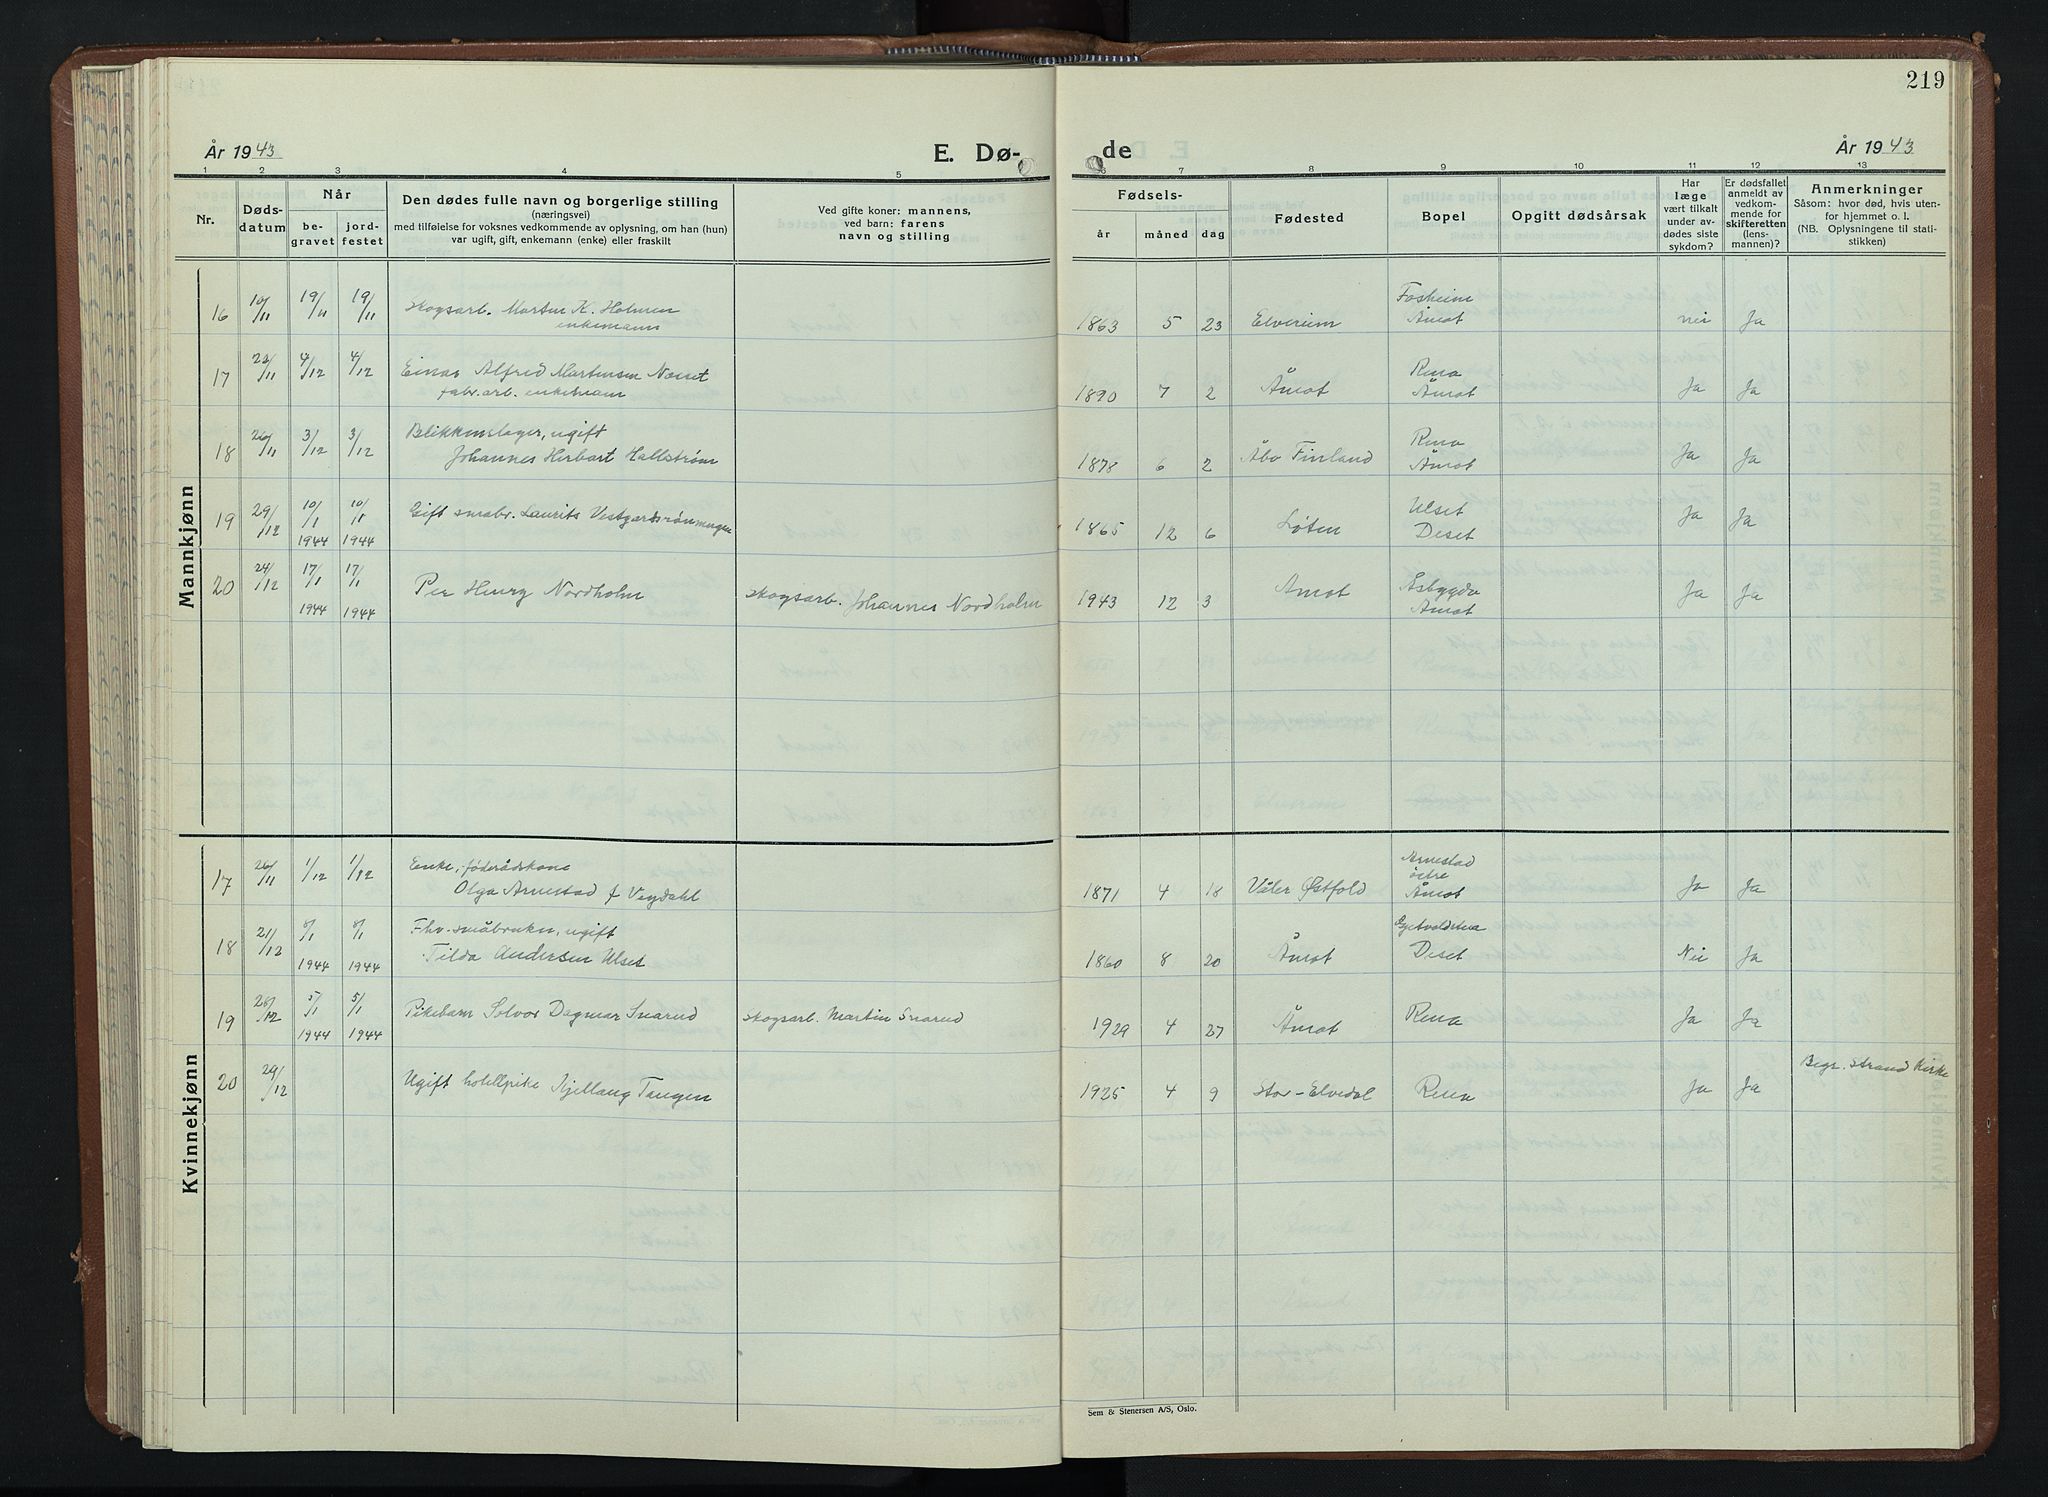 219
År 1943
E. Dø-
de
År 1943
1 2 3 4 5 6 7 8 9 10 11 12 13
Nr.
Døds-
datum
Når
be-
gravet
jord-
festet
Den dødes fulle navn og borgerlige stilling
(næringsvei)
med tilføielse for voksnes vedkommende av oplysning, om han (hun)
var ugift, gift, enkemann (enke) eller fraskilt
Ved gifte koner: mannens,
ved barn: farens
navn og stilling
Fødsels-
år
måned
dag
Fødested
Bopel
Opgitt dødsårsak
Har
læge
vært tilkalt
under av-
dødes siste
sykdom?
Er dødsfallet
anmeldt av
vedkom-
mende for
skifteretten
(lens-
mannen)?
Anmerkninger
Såsom: hvor død, hvis uten-
for hjemmet o. l.
(NB. Oplysningene til stati-
stikken)
Mannkjønn
16 10/11 19/11 19/11 Skogsarb. Martin K. Holmen
enkemann
1863 5 23 Elverum Fosheim
Åmot nei Ja
17 22/11 4/12 4/12 Einar Alfred Martinsen Næset
fabr.arb. enkemann
1890 7 2 Åmot Rena
Åmot Ja Ja
18 26/11 3/12 3/12 Blikkenslager, ugift
Johannes Herbart Hallstrøm
1878 6 2 Åbo Finland Rena
Åmot Ja Ja
19 29/12 10/1 1944 10/1 1944 Gift småbr. Laurits Vestgardsrønningen
1865 12 6 Løten Ulset
Deset Ja Ja
20 24/12 17/1 1944 17/1 1944 Per Henry Nordholm Skogsarb. Johannes Nordholm
1943 12 3 Åmot Åsbygda
Åmot Ja Ja
Kvinnekjønn
17 26/11 1/12 1/12 Enke, føderådskone
Olga Arnestad f Vegdahl
1871 4 18 Våler Østfold Arnestad
østre
Åmot Ja Ja
18 21/12 8/1 1944 8/1 1944 Fhv. småbruker, ugift
Tilda Andersen Ulset
1860 8 20 Åmot
Deset Nei Ja
19 28/12 5/1 1944 5/1 1944 Pikebarn Solvor Dagmar Snarud Skogsarb. Martin Snarud
1929 4 27 Åmot Rena Ja Ja
20 29/12 Ugift hotellpike Kjellaug Tangen
1925 4 9 Stor-Elvedal Rena Ja Ja Begr. Strand Kirke
Sem & Stenersen A/S, Oslo.